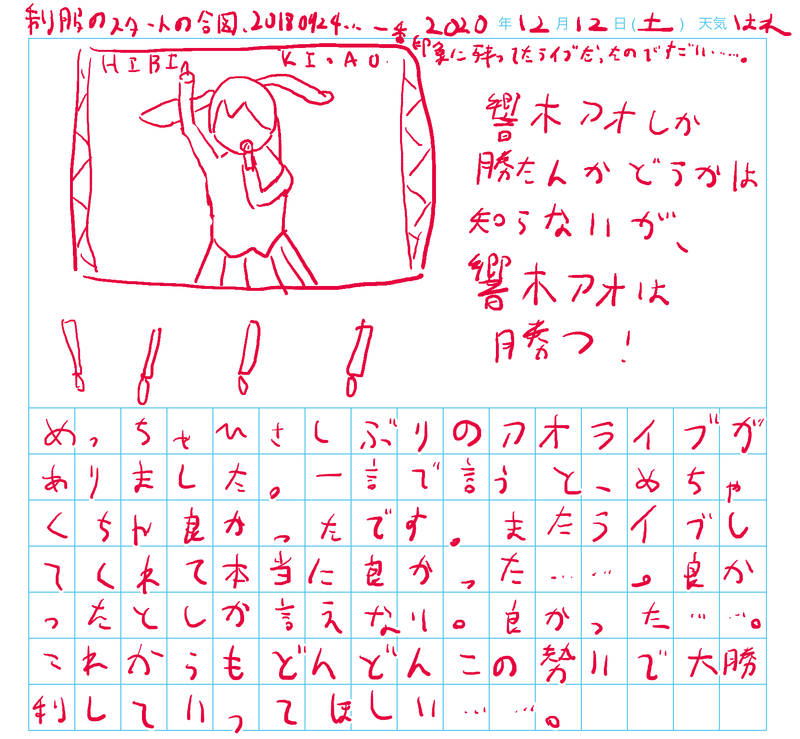 制服のスタートの合図、20180924… 一番
印象に残ってたライブだったのですごい……。
2020年12月12日(土) 天気 はれ
HIBI KI・AO.
響木アオしか
勝たんかどうかは
知らないが、
響木アオは
勝つ!
めっちゃひさしぶりのアオライブが
ありました。一言で言うと、めちゃ
くちゃ良かったです。またライブし
てくれて本当に良かった……。良か
ったとしか言えない。良かった……。
これからもどんどんこの勢いで大勝
利していってほしい……。